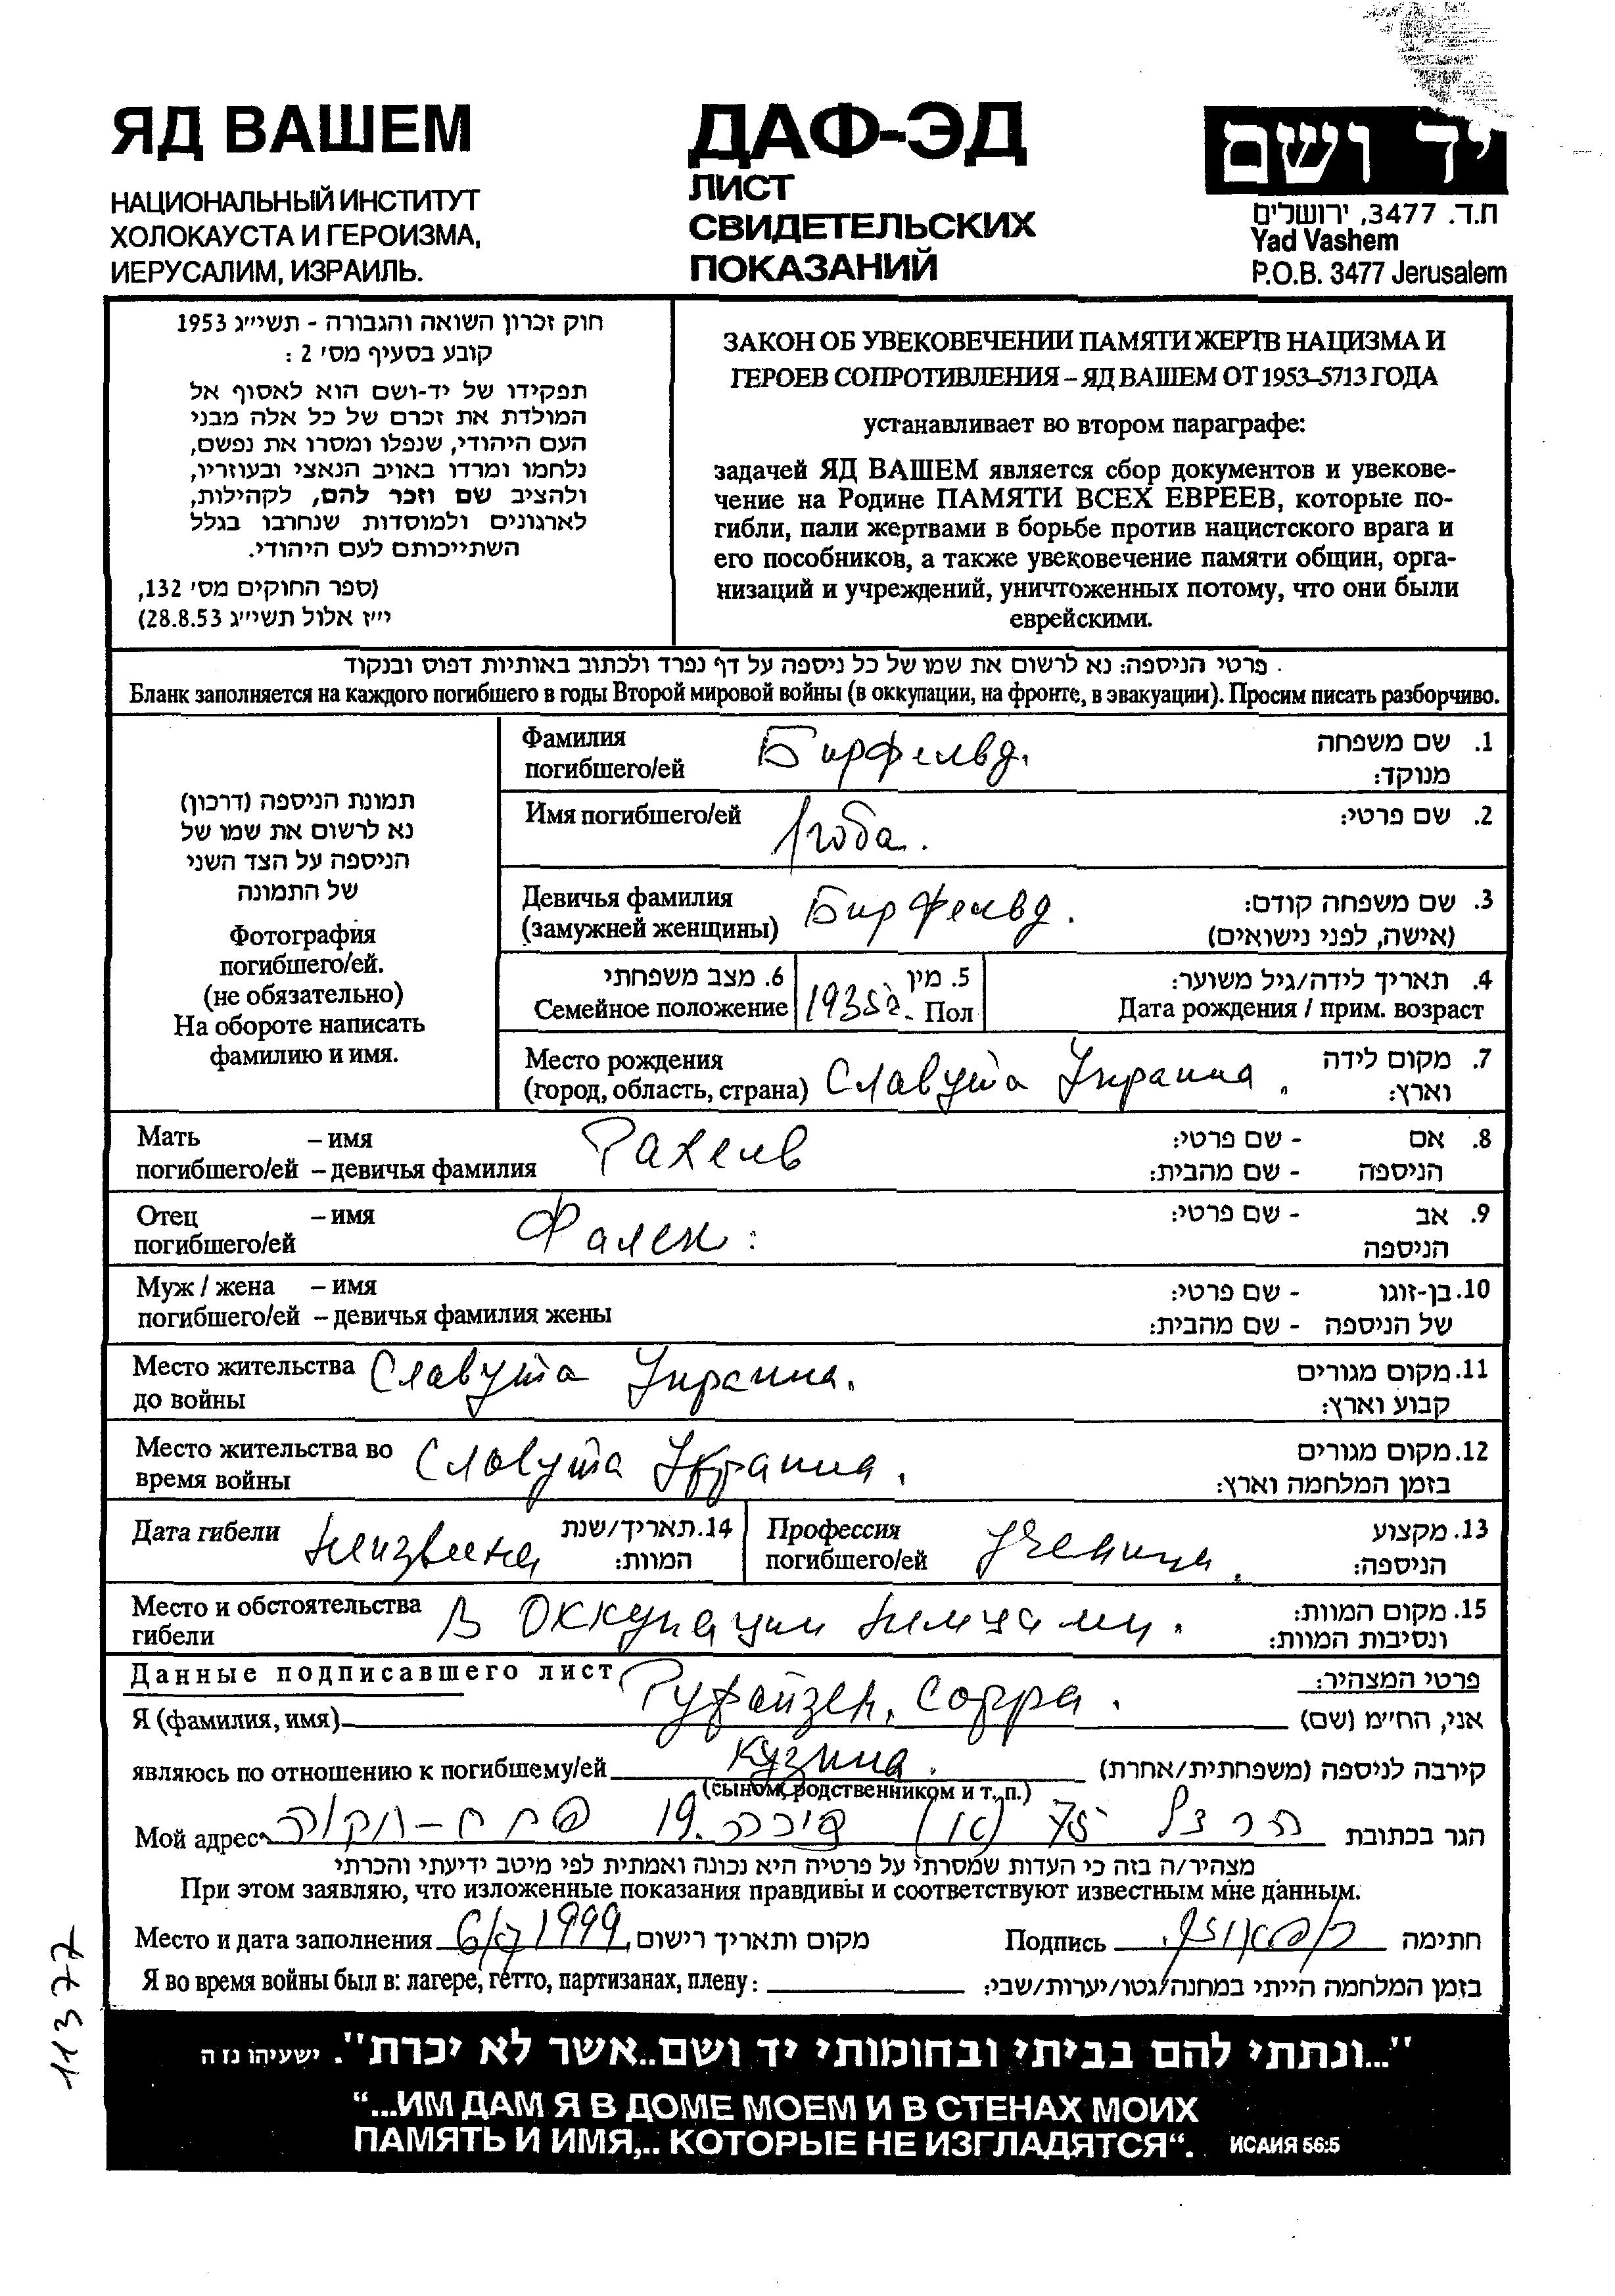 ЯД ВАШЕМ
НАЦИОНАЛЬНЫЙ ИНСТИТУТ
ХОЛОКАУСТА И ГЕРОИЗМА,
ИЕРУСАЛИМ, ИЗРАИЛЬ.
ДАФ-ЭД
ЛИСТ
СВИДЕТЕЛЬСКИХ
ПОКАЗАНИЙ
יד ושם
ת.ד. 3477, ירושלים
Yad Vashem
P.O.B. 3477 Jerusalem
חוק זכרון השואה והגבורה - תשי״ג 1953
קובע בסעיף מס׳ 2 :
תפקידו של יד-ושם הוא לאסוף אל
המולדת את זכרם של כל אלה מבני
העם היהודי, שנפלו ומסרו את נפשם,
נלחמו ומרדו באויב הנאצי ובעוזריו,
ולהציב שם וזכר להם, לקהילות,
לארגונים ולמוסדות שנחרבו בגלל
השתייכותם לעם היהודי.
(ספר החוקים מס׳ 132,
י״ז אלול תשי״ג 28.8.53)
ЗАКОН ОБ УВЕКОВЕЧЕНИИ ПАМЯТИ ЖЕРТВ НАЦИЗМА И
ГЕРОЕВ СОПРОТИВЛЕНИЯ – ЯД ВАШЕМ ОТ 1953–5713 ГОДА
устанавливает во втором параграфе:
задачей ЯД ВАШЕМ является сбор документов и увекове-
чение на Родине ПАМЯТИ ВСЕХ ЕВРЕЕВ, которые по-
гибли, пали жертвами в борьбе против нацистского врага и
его пособников, а также увековечение памяти общин, орга-
низаций и учреждений, уничтоженных потому, что они были
еврейскими.
פרטי הניספה: נא לרשום את שמו של כל ניספה על דף נפרד ולכתוב באותיות דפוס ובנקוד .
Бланк заполняется на каждого погибшего в годы Второй мировой войны (в оккупации, на фронте, в эвакуации). Просим писать разборчиво.
תמונת הניספה (דרכון)
נא לרשום את שמו של
הניספה על הצד השני
של התמונה
Фотография
погибшего/ей.
(не обязательно)
На обороте написать
фамилию и имя.
Фамилия Бирфельд. 1. שם משפחה
погибшего/ей מנוקד:
Имя погибшего/ей 2. שם פרטי:
Девичья фамилия Бирфельд. 3. שם משפחה קודם:
(замужней женщины) (אישה, לפני נישואים)
6. מצב משפחתי 5. מין 4. תאריך לידה/גיל משוער:
Семейное положение 1935г. Пол Дата рождения / прим. возраст
Место рождения Славута Украина. 7. מקום לידה
(город, область, страна) וארץ:
Мать – имя Рахель 8. אם - שם פרטי:
погибшего/ей – девичья фамилия הניספה - שם מהבית:
Отец – имя Фалек. 9. אב - שם פרטי:
погибшего/ей הניספה
Муж / жена – имя 10. בן-זוגו - שם פרטי:
погибшего/ей – девичья фамилия жены של הניספה - שם מהבית:
Место жительства Славута Украина. 11. מקום מגורים
до войны קבוע וארץ:
Место жительства во Славута Украина. 12. מקום מגורים
время войны בזמן המלחמה וארץ:
Дата гибели 14. תאריך/שנת Профессия Ученица. 13. מקצוע
המוות: погибшего/ей הניספה:
Место и обстоятельства В оккупации немцами. 15. מקום המוות:
гибели ונסיבות המוות:
Данные подписавшего лист פרטי המצהיר:
Я (фамилия, имя) Руфайзен, Сорра. אני, הח״מ (שם)
являюсь по отношению к погибшему/ей Кузина. קירבה לניספה (משפחתית/אחרת)
(сыном, родственником и т. п.)
Мой адрес הרצל 75 דירה 19. פתח-תקוה הגר בכתובת
מצהיר/ה בזה כי העדות שמסרתי על פרטיה היא נכונה ואמתית לפי מיטב ידיעתי והכרתי
При этом заявляю, что изложенные показания правдивы и соответствуют известным мне данным.
Место и дата заполнения 1999 מקום ותאריך רישום Подпись חתימה
Я во время войны был в: лагере, гетто, партизанах, плену: בזמן המלחמה הייתי במחנה/גטו/יערות/שבי:
11377
"...ונתתי להם בביתי ובחומותי יד ושם..אשר לא יכרת". ישעיהו נז ה
“...ИМ ДАМ Я В ДОМЕ МОЕМ И В СТЕНАХ МОИХ
ПАМЯТЬ И ИМЯ,.. КОТОРЫЕ НЕ ИЗГЛАДЯТСЯ“. ИСАИЯ 56:5